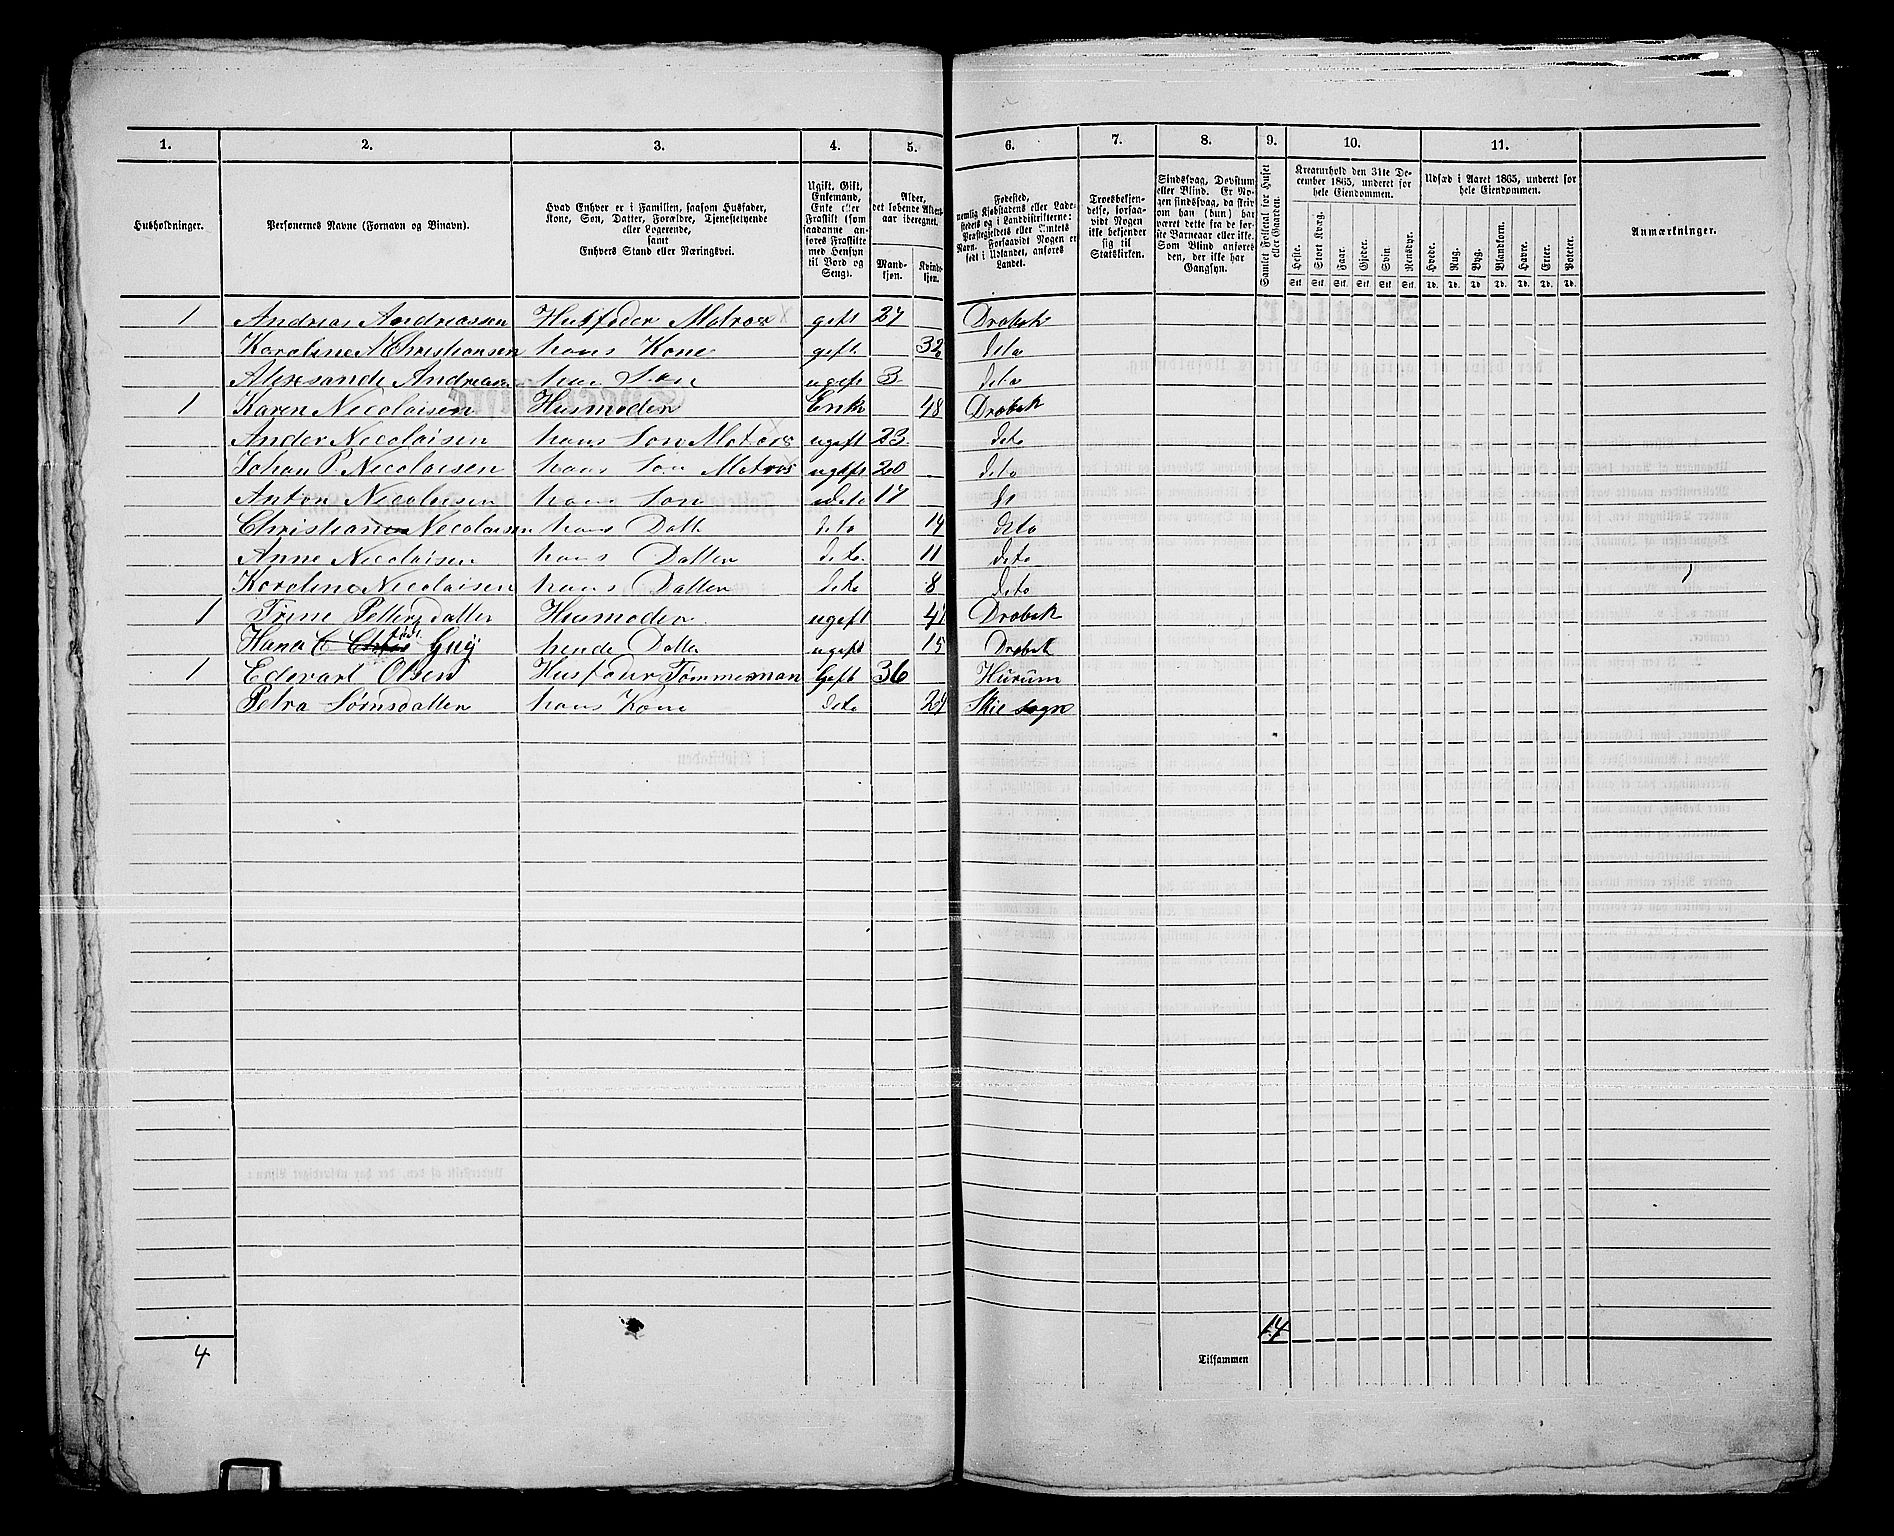 1. 2. 3. 4. 5. 6. 7. 8. 9. 10. 11.
Husholdninger.
Personernes Navne (Fornavn og Binavn).
Hvad Enhver er i Familien, saasom Husfader,
Kone, Søn, Datter, Forældre, Tjenestetyende
eller Logerende,
samt
Enhvers Stand eller Næringsvei.
Ugift, Gift,
Enkemand,
Enke eller
Fraskilt (som
saadanne an-
føres Fraskilte
med Hensyn
til Bord og
Seng).
Alder,
det løbende Alders-
aar iberegnet.
Mand-
kjøn.
Kvinde-
kjøn.
Fødested,
nemlig Kjøbstadens eller Lade-
stedets og i Landdistrikterne:
Præstegjeldets eller Amtets
Navn. Forsaavidt Nogen er
født i Udlandet, anføres
Landet.
Troesbekjen-
delse, forsaa-
vidt Nogen
ikke bekjender
sig til
Statskirken.
Sindssvag, Døvstum
eller Blind. Er No-
gen sindssvag, da skriv
om han (hun) har
været dette fra de før-
ste Barneaar eller ikke.
Som Blind anføres
den, der ikke har
Gangsyn.
Samlet Folketal for Huset
eller Gaarden.
Kreaturhold den 31te De-
cember 1865, underet for
hele Eiendommen.
Heste. Stort Kvæg. Faar. Gjeder. Svin. Rensdyr.
Stk. Stk. Stk. Stk. Stk. Stk.
Udsæd i Aaret 1865, underet for
hele Eiendommen.
Hvede. Rug. Byg. Blandkorn. Havre. Erter. Poteter.
Td. Td. Td. Td. Td. Td. Td.
Anmærkninger.
1 Andreas Andreassen Husfader Matros gift 27 Drøbak
Karoline A Christiansen hans Kone gift 32 deto
Alexsande Andreasen hans Søn ugift 3 deto
1 Karen Nicolaisen Husmoder Enk 48 Drøbak
Ander Nicolaisen hans Søn Matros ugift 23 deto
Johan P. Nicolaisen hans Søn Matros ugift 20 deto
Anton Nicolaisen hans Søn deto 17 de
Christiane Nicolaisen hans Datte deto 14 deto
Anne Nicolaisen hans Datter deto 11 deto
Karoline Nicolaisen hans Datter deto 8 deto
1 Trine Petters datter Husmoder ugift 41 Drøbak
Hana C Guy hende Datter ugift 15 Drøbak
1 Edevart Olsen Husfader Tømmerman Gift 36 Hurum
Petra Sørnsdatter hans Kone deto 29 Skie sogn
14
4 Tilsammen